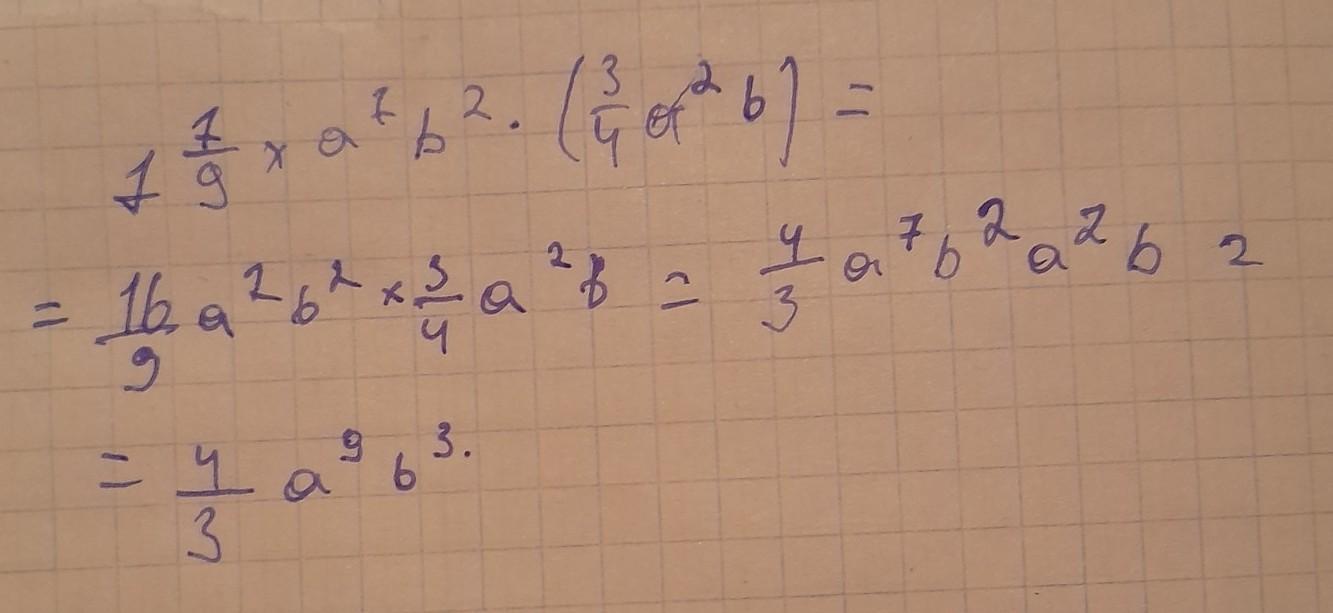 1 7/9 × a^7 b^2 · (3/4 a^2 b) =
= 16/9 a^2 b^2 × 3/4 a^2 b = 4/3 a^7 b^2 a^2 b =
= 4/3 a^9 b^3.